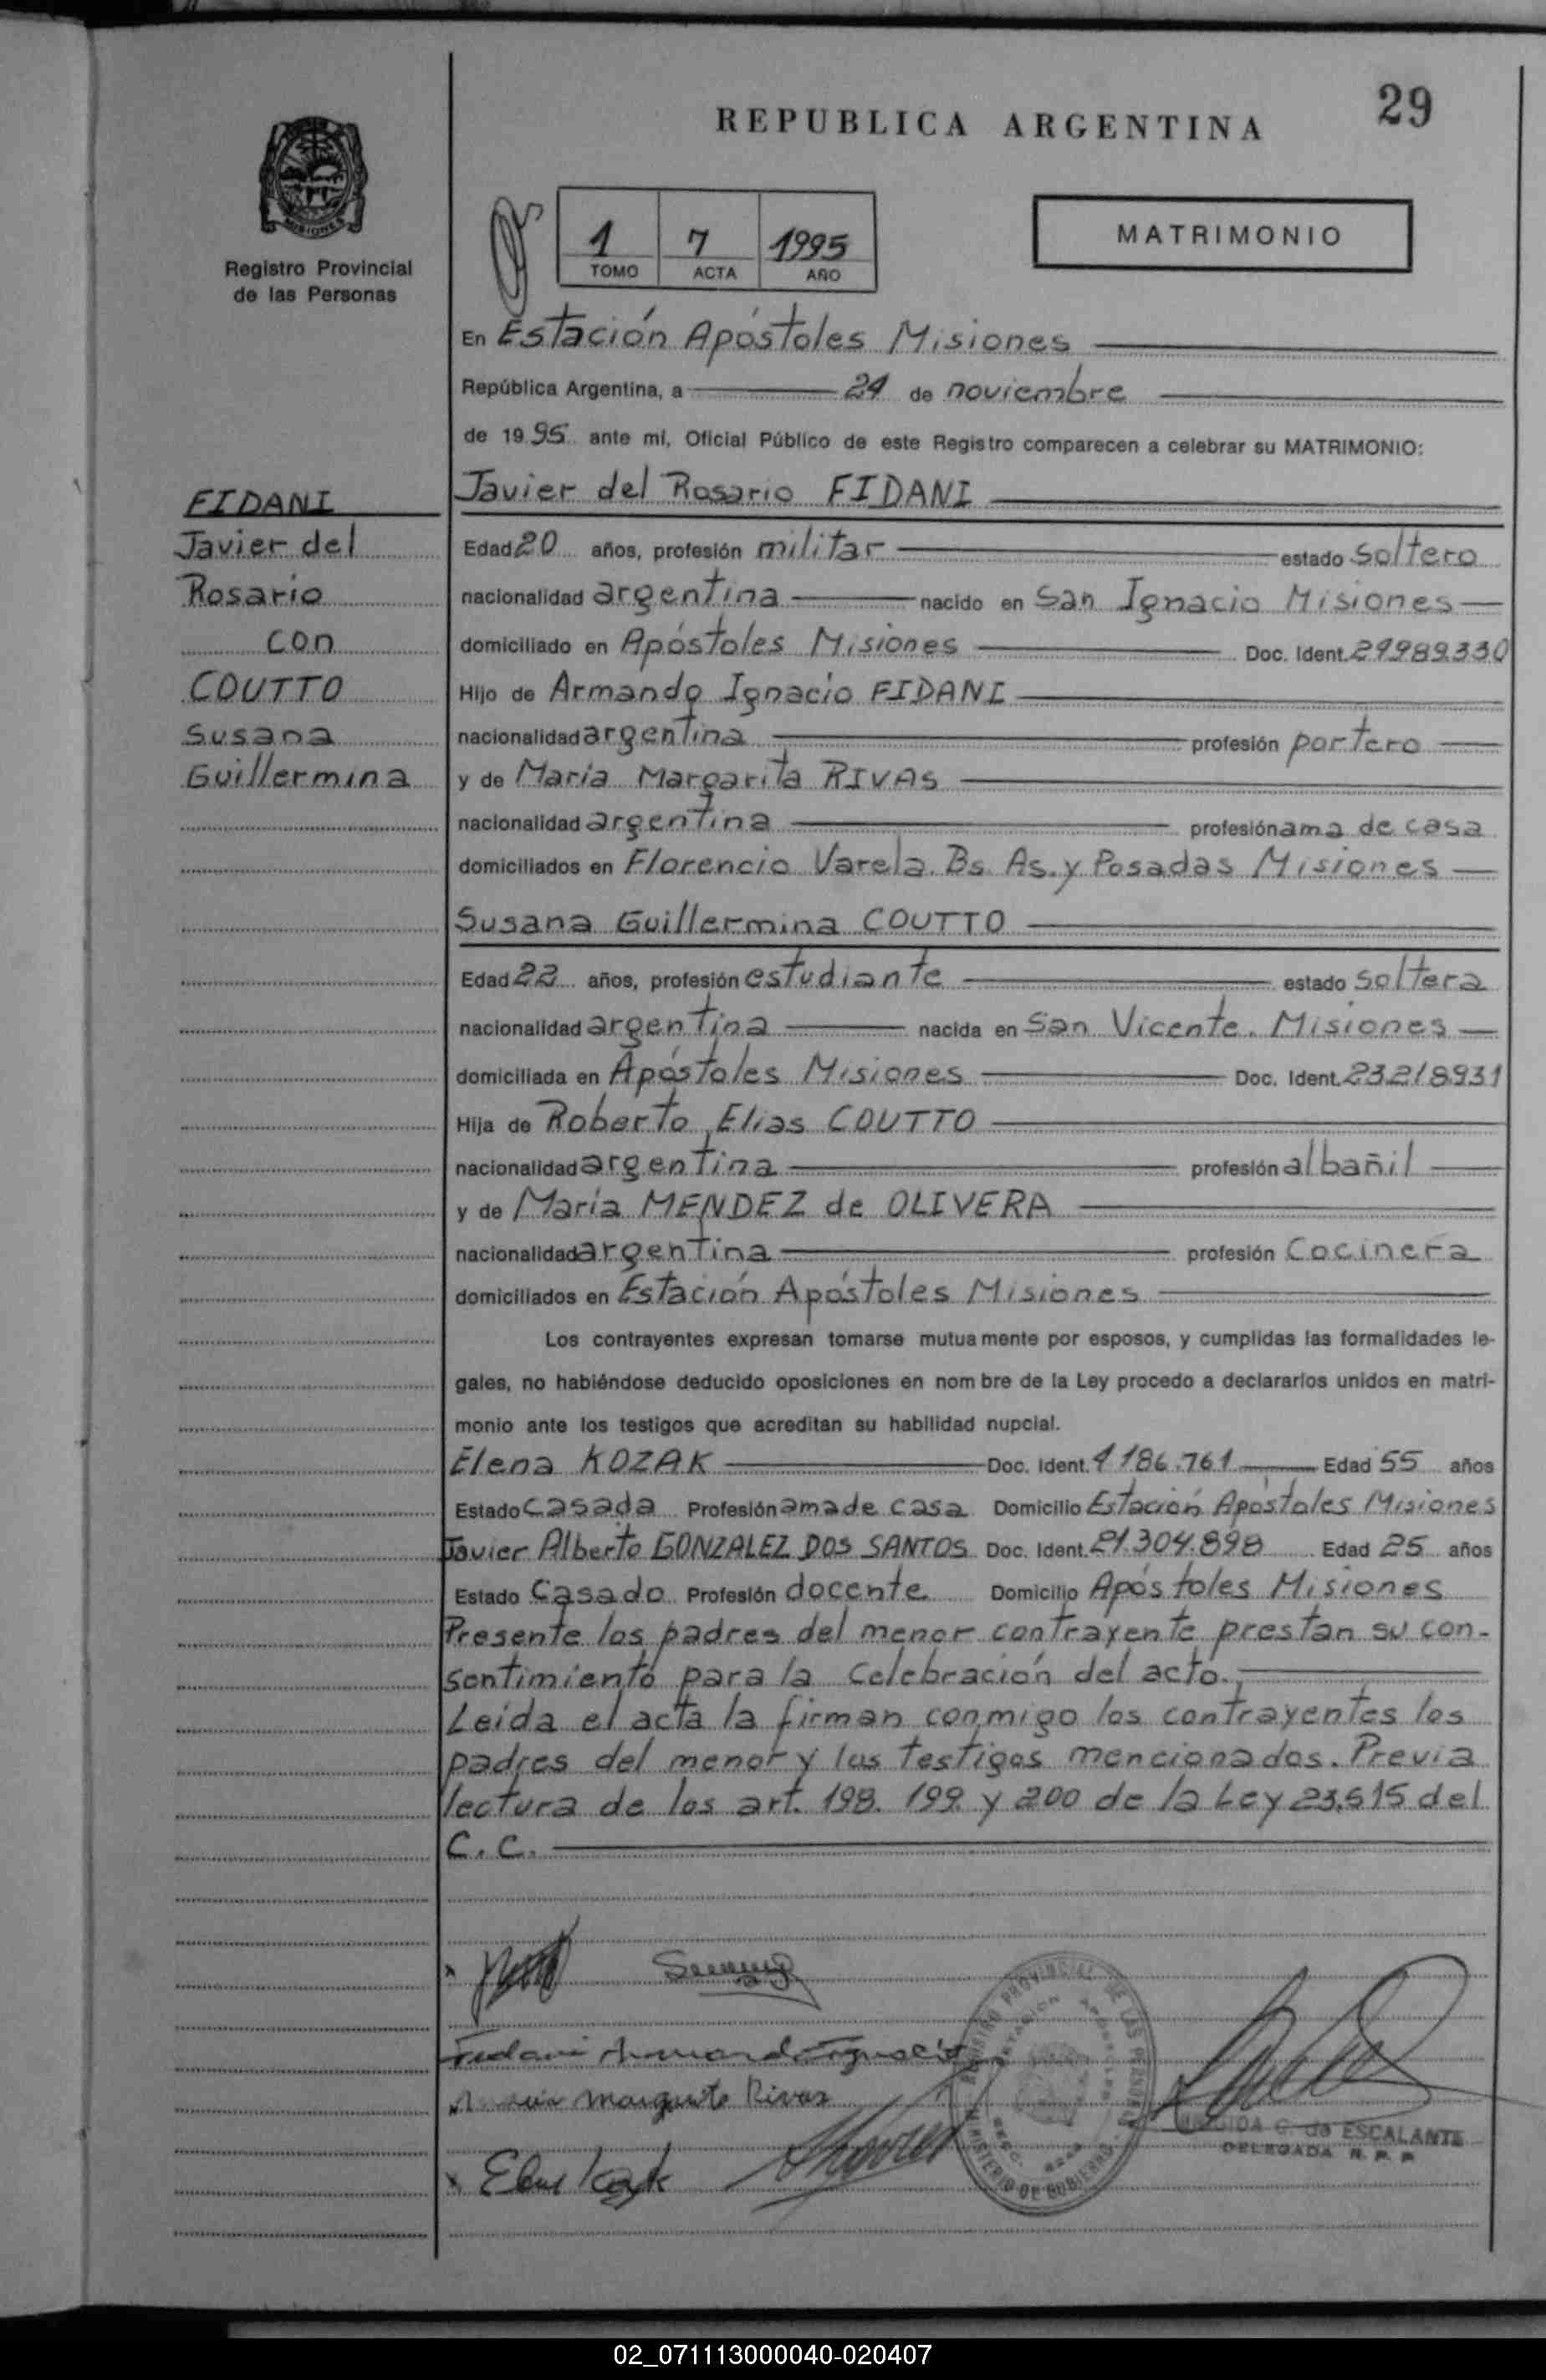 29
REPUBLICA ARGENTINA
MISIONES
Registro Provincial
de las Personas
1 7 1995
TOMO ACTA AÑO
MATRIMONIO
En Estación Apóstoles Misiones
República Argentina, a 24 de noviembre
de 1995 ante mí, Oficial Público de este Registro comparecen a celebrar su MATRIMONIO:
FIDANI
Javier del
Rosario
con
COUTTO
Susana
Guillermina
Javier del Rosario FIDANI
Edad 20 años, profesión militar estado soltero
nacionalidad argentina nacido en San Ignacio Misiones
domiciliado en Apóstoles Misiones Doc. Ident. 24989330
Hijo de Armando Ignacio FIDANI
nacionalidad argentina profesión portero
y de Maria Margarita RIVAS
nacionalidad argentina profesión ama de casa
domiciliados en Florencio Varela. Bs. As. y Posadas Misiones
Susana Guillermina COUTTO
Edad 22 años, profesión estudiante estado soltera
nacionalidad argentina nacida en San Vicente. Misiones
domiciliada en Apóstoles Misiones Doc. Ident. 23218931
Hija de Roberto Elias COUTTO
nacionalidad argentina profesión albañil
y de María MENDEZ de OLIVERA
nacionalidad argentina profesión Cocinera
domiciliados en Estación Apóstoles Misiones
Los contrayentes expresan tomarse mutuamente por esposos, y cumplidas las formalidades le-
gales, no habiéndose deducido oposiciones en nombre de la Ley procedo a declararlos unidos en matri-
monio ante los testigos que acreditan su habilidad nupcial.
Elena KOZAK Doc. Ident. 4186.761 Edad 55 años
Estado Casada Profesión ama de casa Domicilio Estación Apóstoles Misiones
Javier Alberto GONZALEZ DOS SANTOS Doc. Ident. 21.304.898 Edad 25 años
Estado Casado Profesión docente Domicilio Apóstoles Misiones
Presente los padres del menor contrayente prestan su con-
sentimiento para la Celebración del acto.
Leída el acta la firman conmigo los contrayentes los
padres del menor y los testigos mencionados. Previa
lectura de los art. 198. 199. y 200 de la Ley 23.515 del
C. C.
Fidani Armando Ignacio
Maria Margarita Rivas
REGISTRO PROVINCIAL DE LAS PERSONAS
ESTACION APOSTOLES
MINISTERIO DE GOBIERNO
G. de ESCALANTE
DELEGADA R. P. P.
02_071113000040-020407